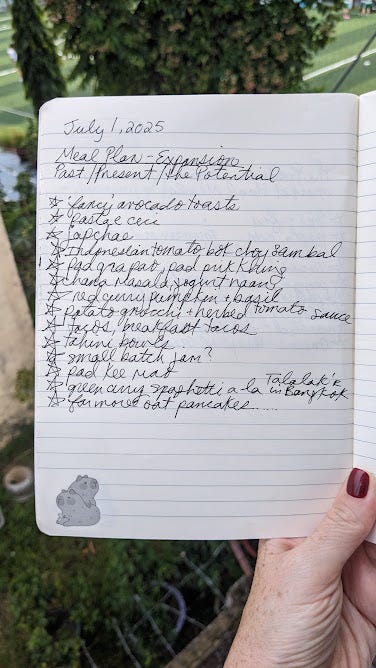 July 1, 2025
Meal Plan - Expansion
Past/Present/The Potential
☆ fancy avocado toasts
☆ Pasta e ceci
☆ japchae
☆ Indonesian tomato bok choy sambal
☆ Pad grapao, pad prik khing
☆ chana masala, yogurt naan?
☆ red curry pumpkin + basil
☆ Potato gnocchi + herbed tomato sauce
☆ Tacos, breakfast tacos
☆ tahini bowls
☆ small batch jam?
☆ pad kee mao
☆ green curry spaghetti a la Talalak's in Bangkok
☆ far more oat pancakes.....